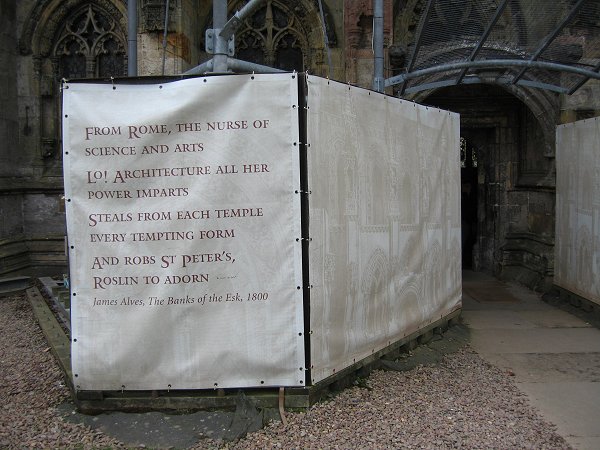 From Rome, the nurse of
science and arts
Lo! Architecture all her
power imparts
Steals from each temple
every tempting form
And robs St Peter's,
Roslin to adorn
James Alves, The Banks of the Esk, 1800